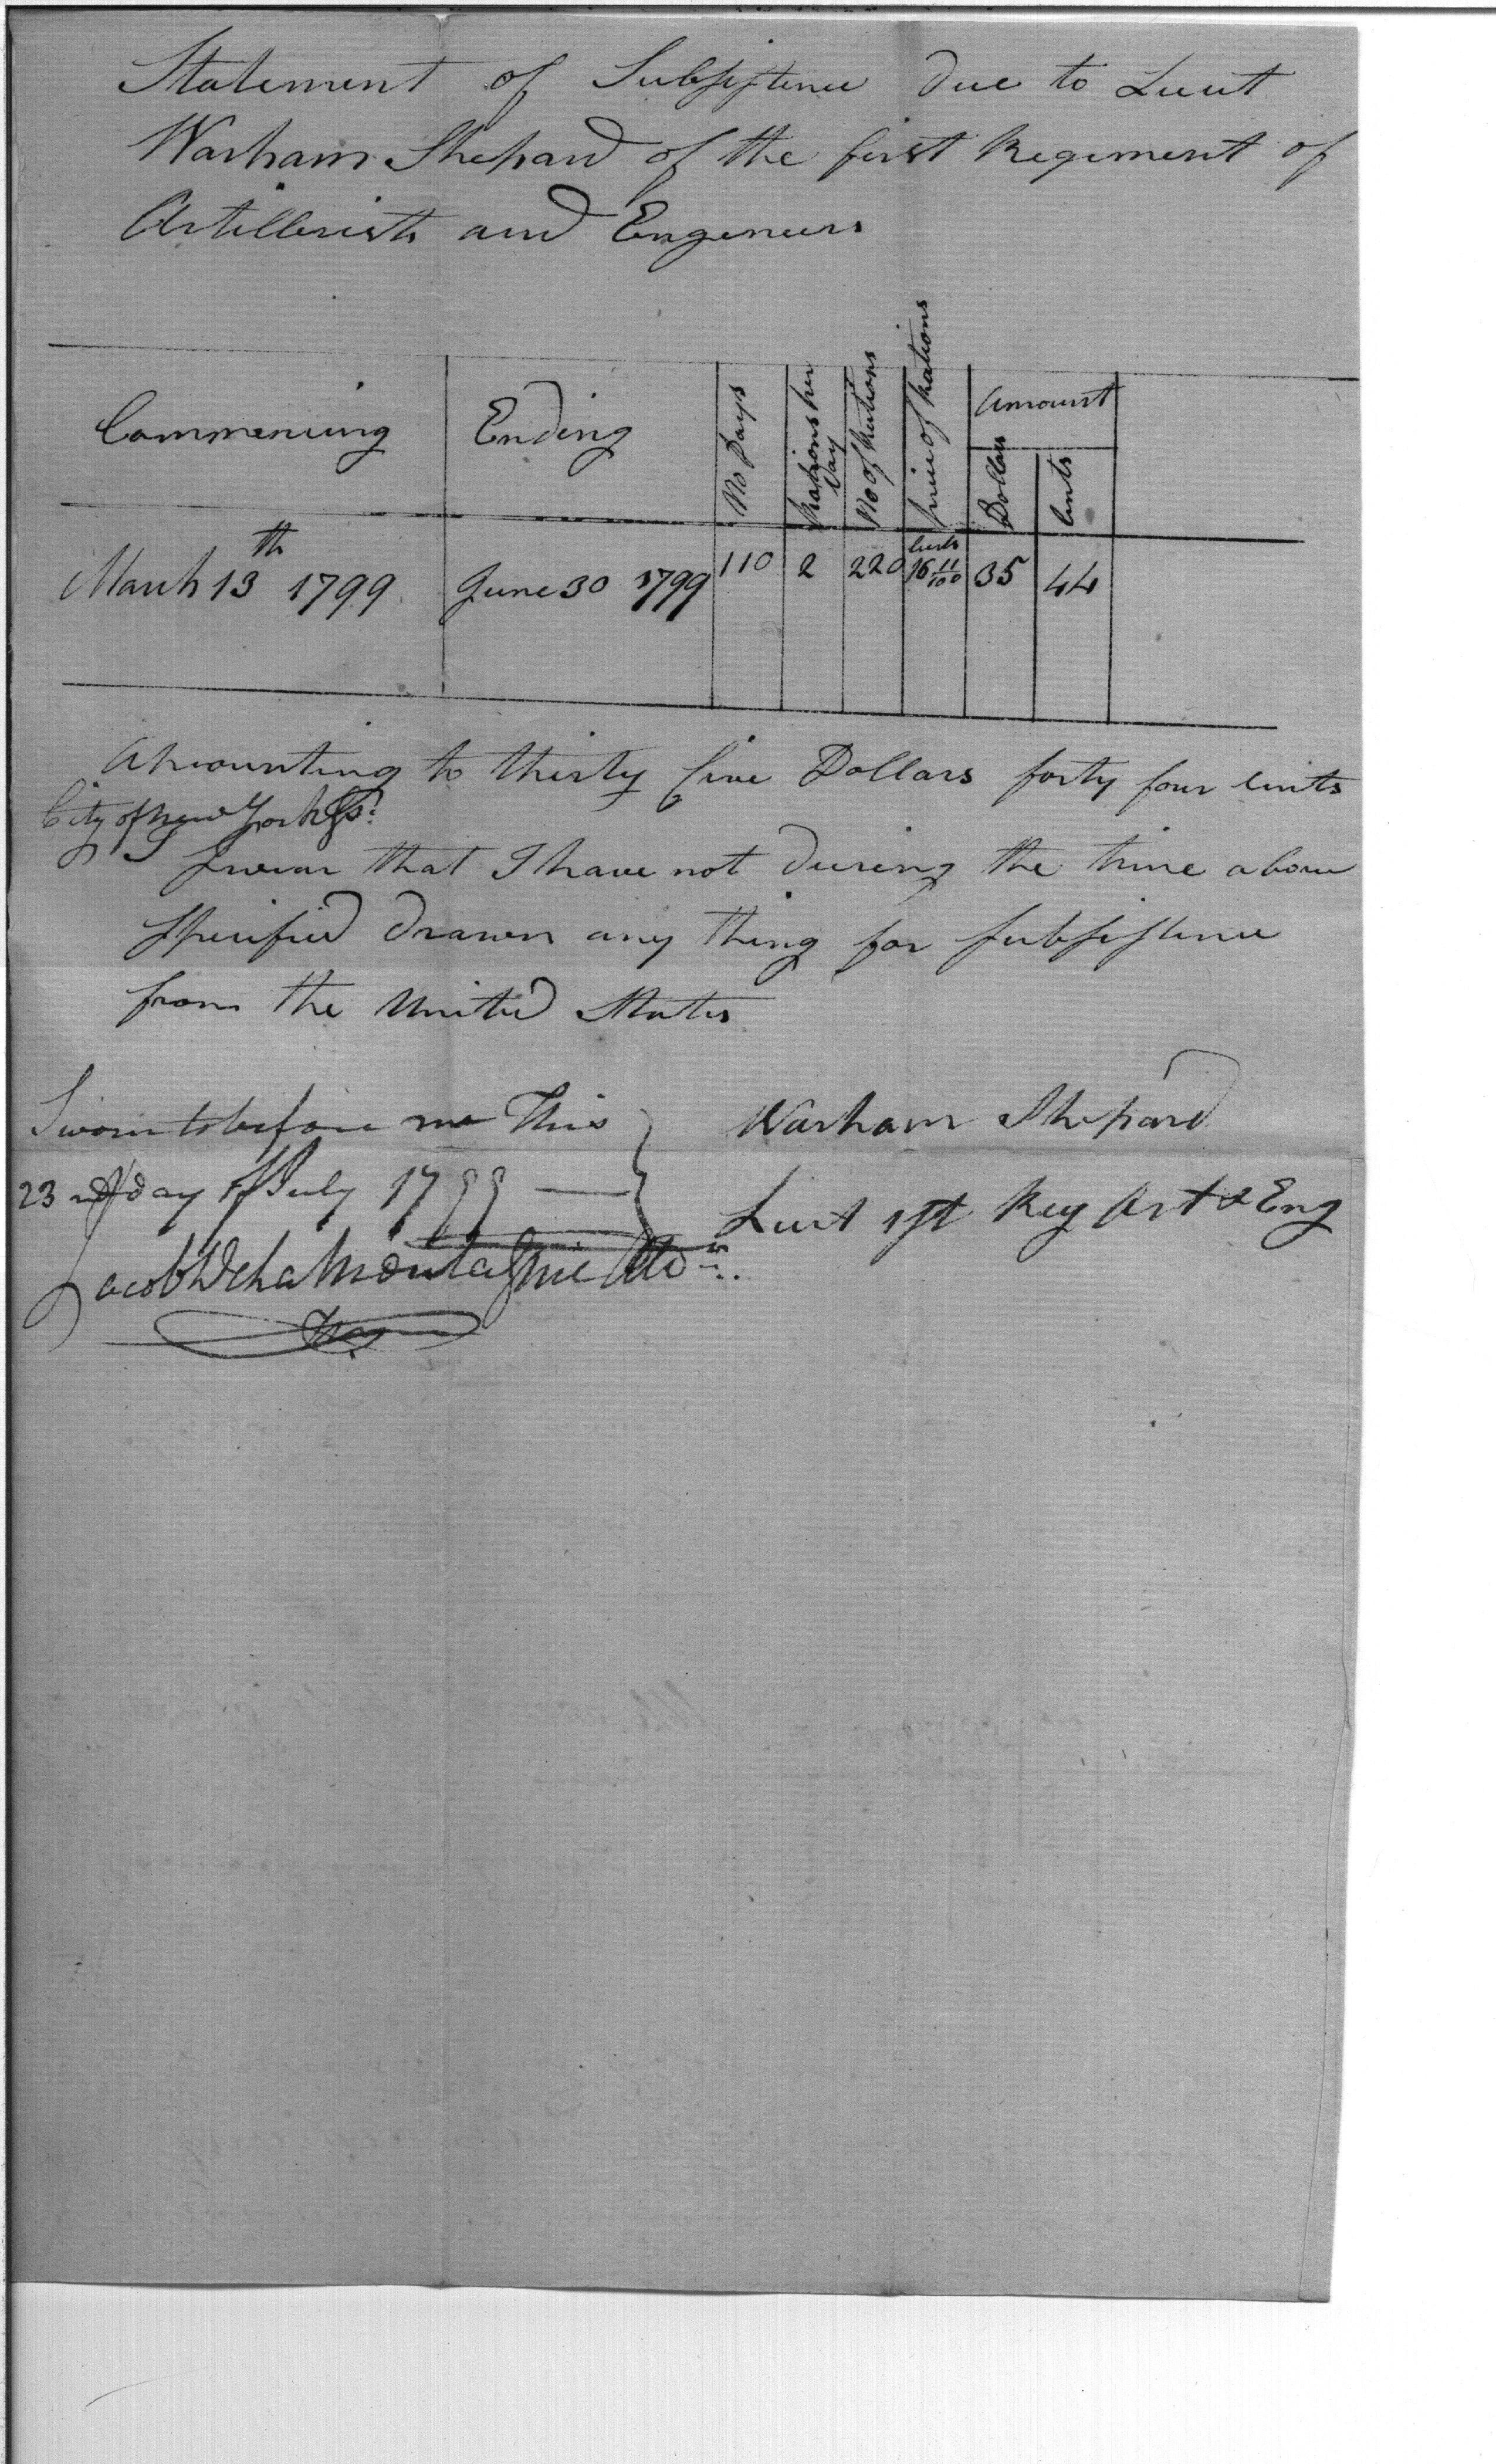 Statement of Subsistence due to Lieut
Warham Shepard of the first Regiment of
Artillerists and Engeneers
Commencing Ending No Days Rations per Day No of Rations price of Rations Amount
Dollars Cents
March 13th 1799 June 30 1799 110 2 220 Cents 16 11/100 35 44
Amounting to thirty five Dollars forty four Cents
City of New York Ss:
I swear that I have not during the time above
specified drawn any thing for subsistence
from the United States
Sworn to before me This Warham Shepard
23rd day of July 1799 Lieut 1st Reg Art & Eng
Jacob De La Montagnie